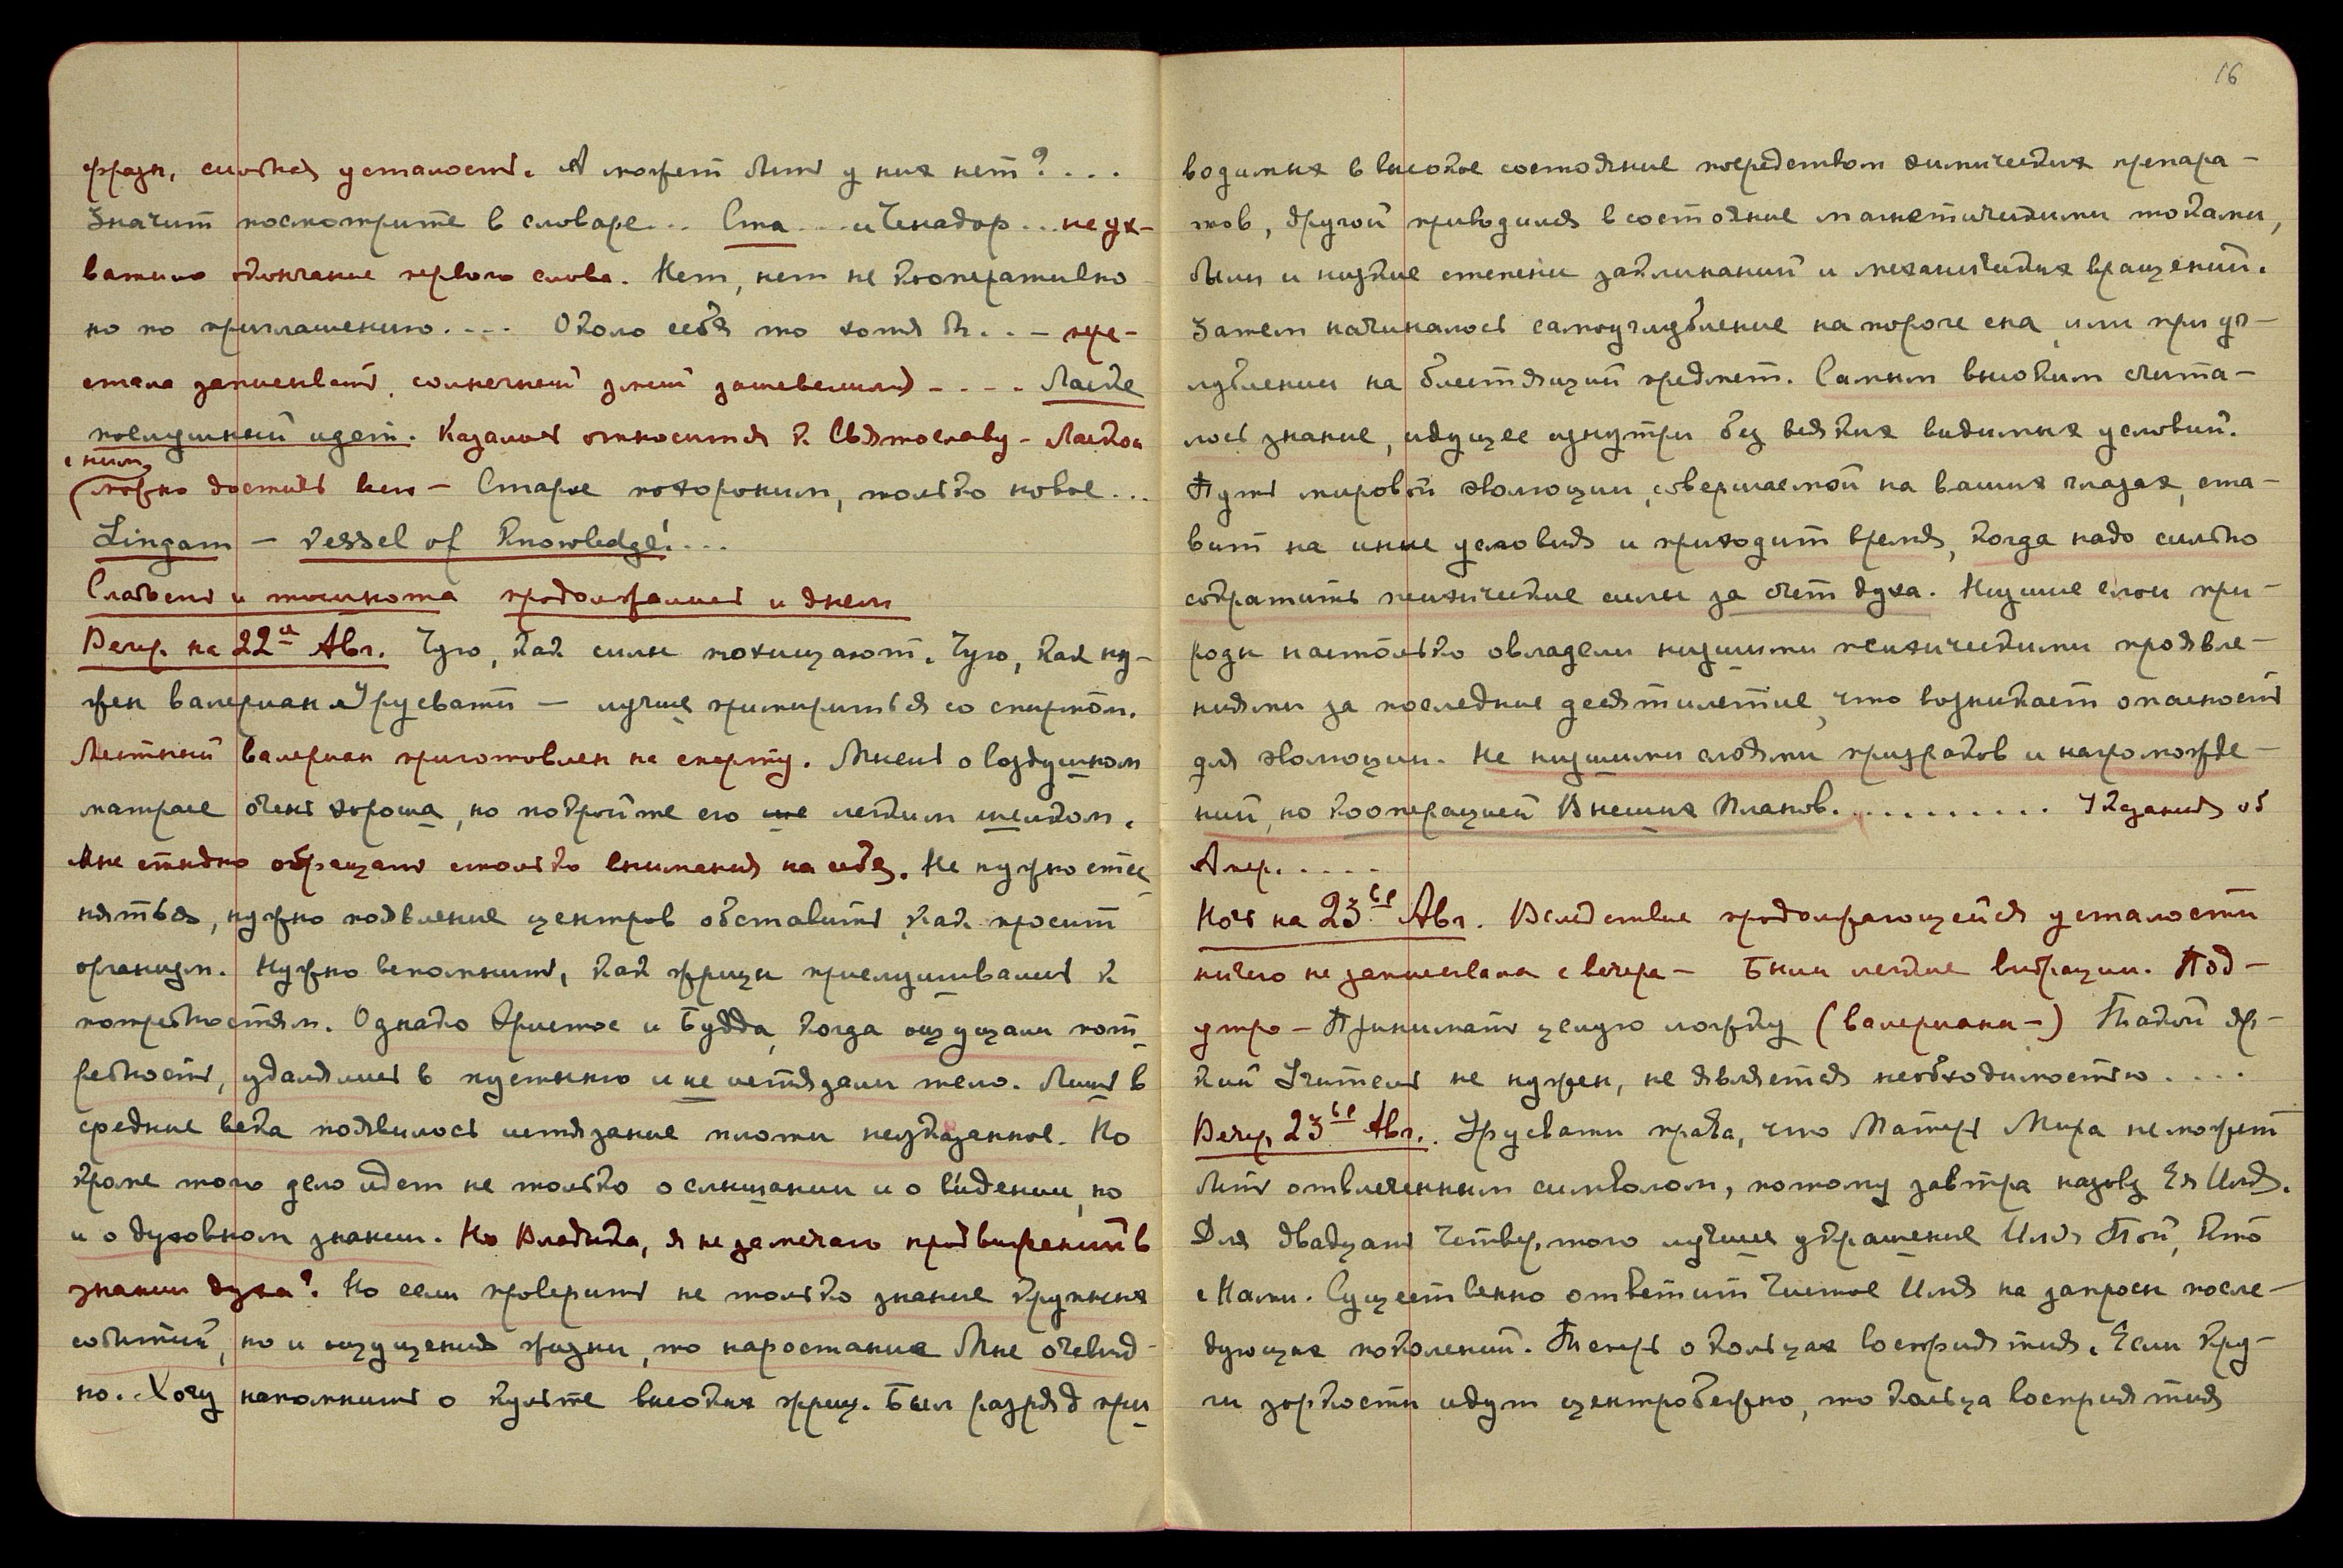 фразы, сильная усталость. А может быть у них нет?....
Значит посмотрите в словаре... Ста....и Чинадор...не ух-
ватила окончание первого слова. Нет, нет не кооперативно
но по приглашению.... Около себя то хотя бы... – пре-
стала записывать, солнечный змей зашевелился – .... Ласке
послушный идет. Казалось относится к Святославу – Лаской
с ним
(можно достичь всего – Старое похороним, только новое...
Lingam – vessel of Knowledge!...
Слабость и тошнота продолжались и днем
Вечер на 22ое Авг. Чую, как силы похищают. Чую, как ну-
жен валериан Урусвати – лучше примириться со спиртом.
Местный валериан приготовлен на спирту. Мысль о воздушном
матрасе очень хороша, но покройте его ше легким шелком.
Мне стыдно обращать столько внимания на себя. Не нужно стес-
няться, нужно появление центров обставить, как просит
организм. Нужно вспомнить, как жрицы прислушивались к
потребностям. Однако Христос и Будда, когда ощущали пот-
ребность, удалялись в пустыню и не истязали тело. Лишь в
средние века появилось истязание плоти неуказанное. Но
кроме того дело идет не только о слышании и о ви́дении, но
и о духовном знании. Но Владыка, я не замечаю продвижений в
знании духа? Но если проверить не только знание крупных
событий, но и ощущения жизни, то нарастание Мне очевид-
но. Хочу напомнить о культе высоких жриц. Был разряд при-
16
водимых в высокое состояние посредством химических препара-
тов, другой приводился в состояние магнетическими токами,
были и низкие степени заклинаний и механических вращений.
Затем начиналось самоуглубление на пороге сна, или при уг-
лублении на блестящий предмет. Самым высоким счита-
лось знание, идущее изнутри без всяких видимых условий.
Путь мировой эволюции, совершаемой на ваших глазах, ста-
вит на иные условия и приходит время, когда надо сильно
сократить психические силы за счет духа. Низшие слои при-
роды настолько овладели низшими психическими проявле-
ниями за последние десятилетие, что возникает опасность
для эволюции. Не низшими слоями призраков и нагроможде-
ний, но кооперацией Внешних Планов........... Указания об
Амер.....
Ночь на 23ье Авг. Вследствие продолжающейся усталости
ничего не записывала с вечера – Были легкие вибрации. Под-
утро – Принимать целую ложку (валерианы –) Такой яр-
кий Учитель не нужен, не является необходимостью....
Вечер 23ье Авг. Урусвати права, что Матерь Мира не может
быть отвлеченным символом, потому завтра назову Ея Имя.
Для двадцать четвертого лучшее украшение Имя Той, Кто
с Нами. Существенно ответит Чистое Имя на запросы после-
дующих поколений. Теперь о кольцах восприятия. Если кру-
ги зоркости идут центробежно, то кольца восприятия